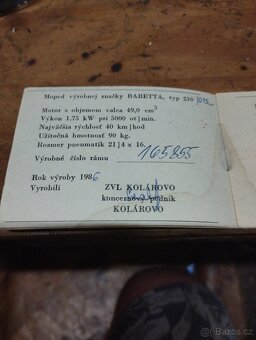 Moped výrobnej značky BABETTA, typ 210/012
Motor s objemom valca 49,0 cm³
Výkon 1,75 kW pri 5000 ot|min.
Najväčšia rýchlosť 40 km|hod
Užitočná hmotnosť 90 kg.
Rozmer pneumatík 21|4 x 16.
Výrobné číslo rámu 165855
Rok výroby 1986
Vyrobili ZVL KOLÁROVO
koncernový podnik
KOLÁROVO
Sbazoš.cz